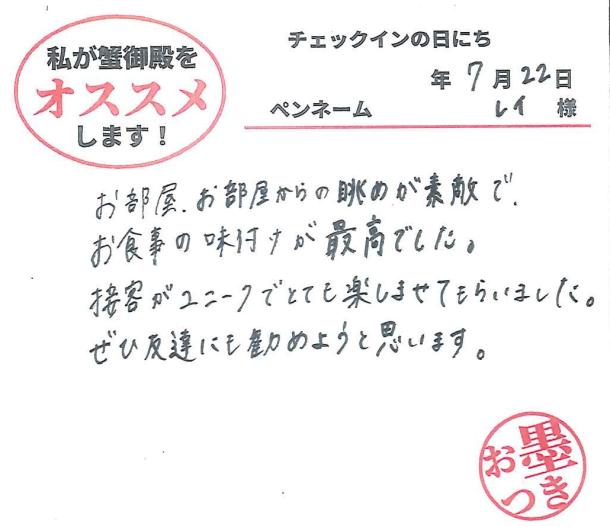 私が蟹御殿を
オススメ
します！
チェックインの日にち
年 7月22日
ペンネーム レイ 様
お部屋、お部屋からの眺めが素敵で、
お食事の味付けが最高でした。
接客がユニークでとても楽しませてもらいました。
ぜひ友達にも勧めようと思います。
お墨
つき